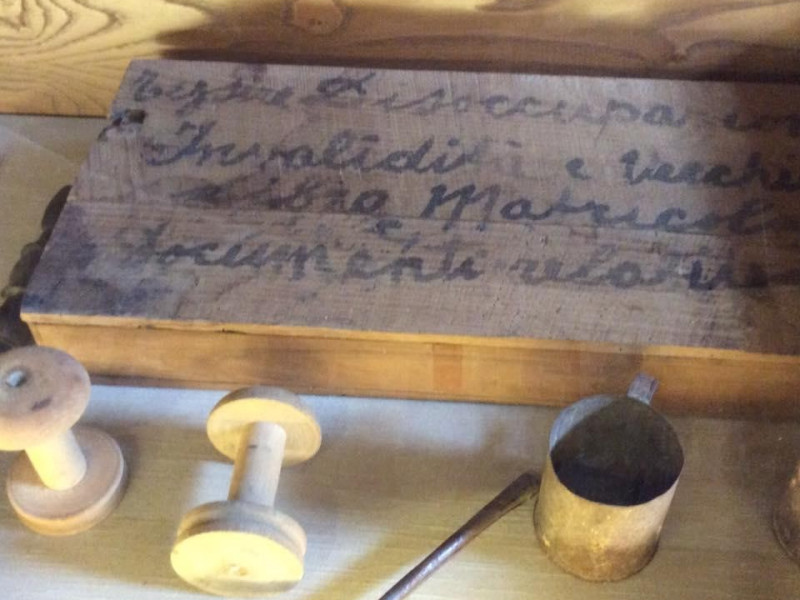 Disoccupazion
Invalidità e Vecchi
Libro Matricol
e
Documenti relativi